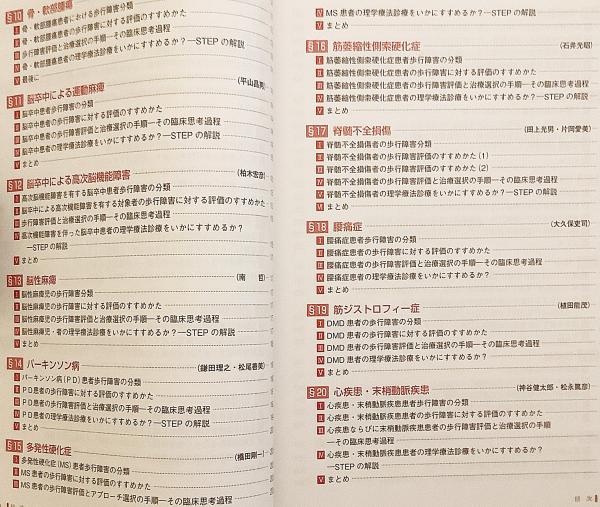 §10 骨・軟部腫瘍
Ⅰ 骨・軟部腫瘍患者における歩行障害の分類
Ⅱ 骨・軟部腫瘍患者の歩行障害に対する評価のすすめかた
Ⅲ 歩行障害評価と治療選択の手順―その臨床思考過程
Ⅳ 骨・軟部腫瘍患者の理学療法診療をいかにすすめるか？―STEPの解説
Ⅴ 最後に
§11 脳卒中による運動麻痺 (平山昌男)
Ⅰ 脳卒中患者歩行障害の分類
Ⅱ 脳卒中患者の歩行障害に対する評価のすすめかた
Ⅲ 脳卒中患者の歩行障害評価と治療選択の手順―その臨床思考過程
Ⅳ 脳卒中患者の理学療法診療をいかにすすめるか？―STEPの解説
Ⅴ まとめ
§12 脳卒中による高次脳機能障害 (柏木宏彦)
Ⅰ 高次脳機能障害を有する脳卒中患者歩行障害の分類
Ⅱ 脳卒中による高次脳機能障害を有する対象者の歩行障害に対する評価のすすめかた
Ⅲ 歩行障害評価と治療選択の手順―その臨床思考過程
Ⅳ 高次脳機能障害を伴った脳卒中患者の理学療法診療をいかにすすめるか？
―STEPの解説
Ⅴ まとめ
§13 脳性麻痺 (南 哲)
Ⅰ 脳性麻痺児の歩行障害分類
Ⅱ 脳性麻痺児の歩行障害に対する評価のすすめかた
Ⅲ 脳性麻痺児の歩行障害評価と治療選択の手順―その臨床思考過程
Ⅳ 脳性麻痺児・者の理学療法診療をいかにすすめるか？―STEPの解説
Ⅴ まとめ
§14 パーキンソン病 (鎌田理之・松尾善美)
Ⅰ パーキンソン病（PD）患者歩行障害の分類
Ⅱ PD患者の歩行障害に対する評価のすすめかた
Ⅲ PD患者の歩行障害評価と治療選択の手順―その臨床思考過程
Ⅳ PD患者の理学療法診療をいかにすすめるか？―STEPの解説
Ⅴ まとめ
§15 多発性硬化症 (橋田剛一)
Ⅰ 多発性硬化症（MS）患者歩行障害の分類
Ⅱ MS患者の歩行障害に対する評価のすすめかた
Ⅲ MS患者の歩行障害評価とアプローチ選択の手順―その臨床思考過程
Ⅳ MS患者の理学療法診療をいかにすすめるか？―STEPの解説
Ⅴ まとめ
§16 筋萎縮性側索硬化症 (石井光昭)
Ⅰ 筋萎縮性側索硬化症患者歩行障害の分類
Ⅱ 筋萎縮性側索硬化症患者の歩行障害に対する評価のすすめかた
Ⅲ 筋萎縮性側索硬化症患者の歩行障害評価と治療選択の手順―その臨床思考過程
Ⅳ 筋萎縮性側索硬化症患者の理学療法診療をいかにすすめるか？―STEPの解説
Ⅴ まとめ
§17 脊髄不全損傷 (田上光男・片岡愛美)
Ⅰ 脊髄不全損傷者の歩行障害分類
Ⅱ 脊髄不全損傷者の歩行障害評価のすすめかた（1）
Ⅲ 脊髄不全損傷者の歩行障害評価のすすめかた（2）
Ⅳ 脊髄不全損傷者の歩行障害評価と治療選択の手順―その臨床思考過程
Ⅴ 脊髄不全損傷者の理学療法診療をいかにすすめるか？―STEPの解説
Ⅵ まとめ
§18 腰痛症 (大久保吏司)
Ⅰ 腰痛症患者歩行障害の分類
Ⅱ 腰痛症患者の歩行障害に対する評価のすすめかた
Ⅲ 腰痛症患者の歩行障害評価と治療選択の手順―その臨床思考過程
Ⅳ 腰痛症患者の理学療法診療をいかにすすめるか？
Ⅴ まとめ
§19 筋ジストロフィー症 (植田能茂)
Ⅰ DMD患者の歩行障害の分類
Ⅱ DMD患者の歩行障害に対する評価のすすめかた
Ⅲ DMD患者の歩行障害評価と治療選択の手順―その臨床思考過程
Ⅳ DMD患者の理学療法診療をいかにすすめるか？
Ⅴ まとめ
§20 心疾患・末梢動脈疾患 (神谷健太郎・松永篤彦)
Ⅰ 心疾患・末梢動脈疾患患者歩行障害の分類
Ⅱ 心疾患・末梢動脈疾患患者の歩行障害に対する評価のすすめかた
Ⅲ 心疾患ならびに末梢動脈疾患患者の歩行障害評価と治療選択の手順
―その臨床思考過程
Ⅳ 心疾患・末梢動脈疾患患者の理学療法診療をいかにすすめるか？
―STEPの解説
Ⅴ まとめ
目 次